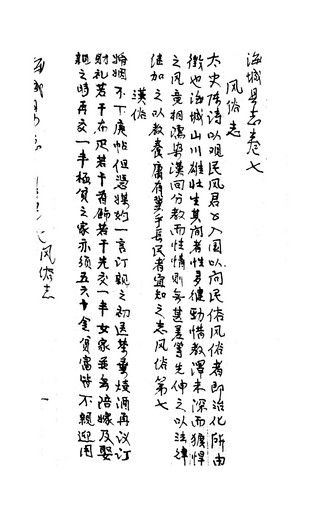 海城县志卷七
风俗志
太史陈诗以观民风君子入国以问民俗风俗者即治化所由
徵也海城山川雄壮生其间者性多健劲惜教泽未深而犷悍
之风竟相濡染汉回分教而性情则无甚差等生仲之以法律
继加之以教养庸有冀乎长民者宜知之志风俗第七
汉俗
婚姻不下庚帖但凭媒妁一言订亲之初送茶叶烧酒再议订
财礼若干布疋若干首饰若干先交一半女家无陪嫁及娶
亲之时再交一半极贫之家亦须五六十金贫富皆不亲迎用
海城县志
卷七风俗志
一